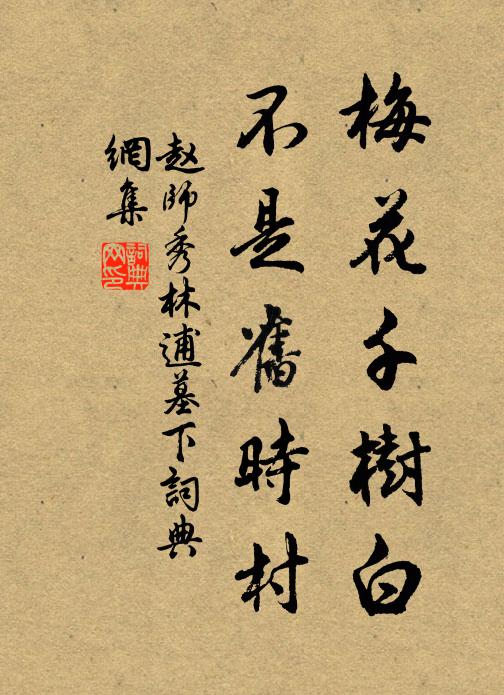 梅花千樹白
不是舊時村
趙師秀林逋墓下詞典
網集
詞典
网印